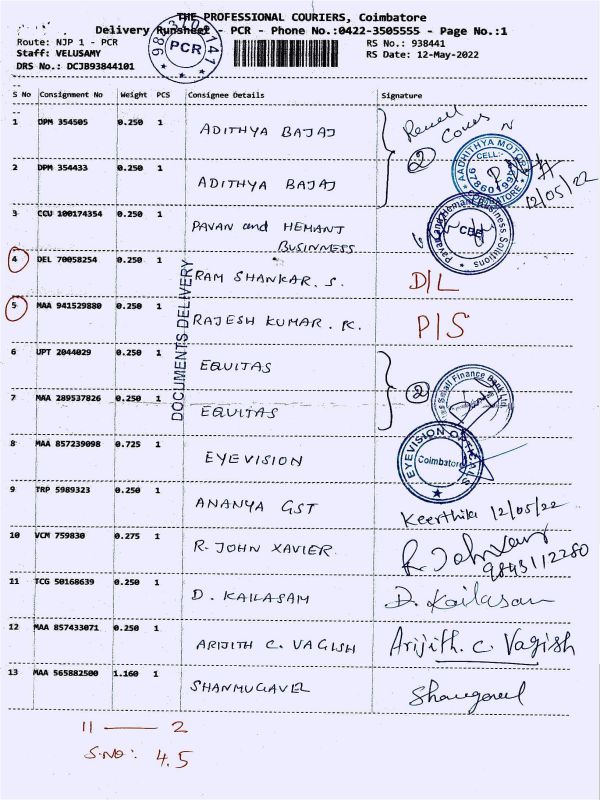 THE PROFESSIONAL COURIERS, Coimbatore
Delivery Runsheet - PCR - Phone No.:0422-3505555 - Page No.:1
Route: NJP 1 - PCR
RS No.: 938441
Staff: VELUSAMY
RS Date: 12-May-2022
DRS No.: DCJB93844101
PCR
S No Consignment No Weight PCS Consignee Details Signature
1 DPM 354505 0.250 1 ADITHYA BAJAJ
2 DPM 354433 0.250 1 ADITHYA BAJAJ
2
AADHITHYA MOTORS
CELL:
COIMBATORE
12/05/22
3 CCU 100174354 0.250 1 PAVAN and HEMANT
BUSINNESS
Pavan and Hemant Business Solutions
CBE
4 DEL 70058254 0.250 1 RAM SHANKAR. S. D/L
5 MAA 941529880 0.250 1 RAJESH KUMAR. K. P/S
DOCUMENTS DELIVERY
6 UPT 2044029 0.250 1 EQUITAS
7 MAA 289537826 0.250 1 EQUITAS
2
Small Finance Bank Ltd.
8 MAA 857239098 0.725 1 EYEVISION
EYEVISION OPTICALS
Coimbatore
9 TRP 5989323 0.250 1 ANANYA GST Keerthika 12/05/22
10 VCM 759830 0.275 1 R. JOHN XAVIER. R. John Xavier
9843112280
11 TCG 50168639 0.250 1 D. KAILASAM D. Kailasam
12 MAA 857433071 0.250 1 ARIJITH C. VAGISH Arijith. C. Vagish
13 MAA 565882500 1.160 1 SHANMUGAVEL
11 — 2
S.NO: 4.5